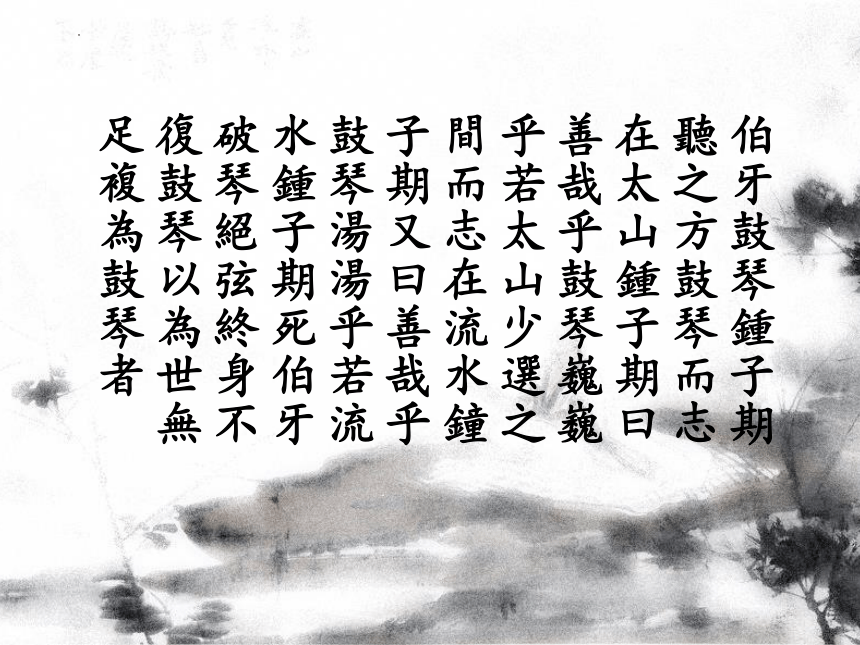 伯牙鼓琴鍾子期
聽之方鼓琴而志
在太山鍾子期曰
善哉乎鼓琴巍巍
乎若太山少選之
間而志在流水鐘
子期又曰善哉乎
鼓琴湯湯乎若流
水鍾子期死伯牙
破琴絕弦終身不
復鼓琴以為世無
足複為鼓琴者